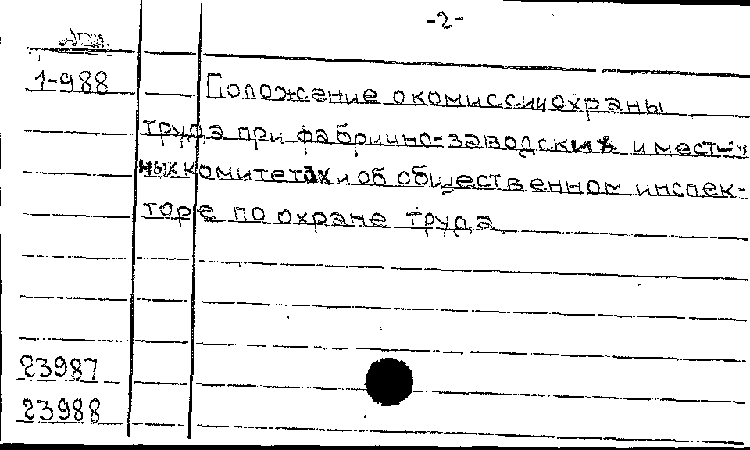 -2-
1-988 Положение о комиссии охраны
труда при фабрично-заводских и мест-
ных комитетах и об общественном инспек-
торе по охране труда
23987
23988